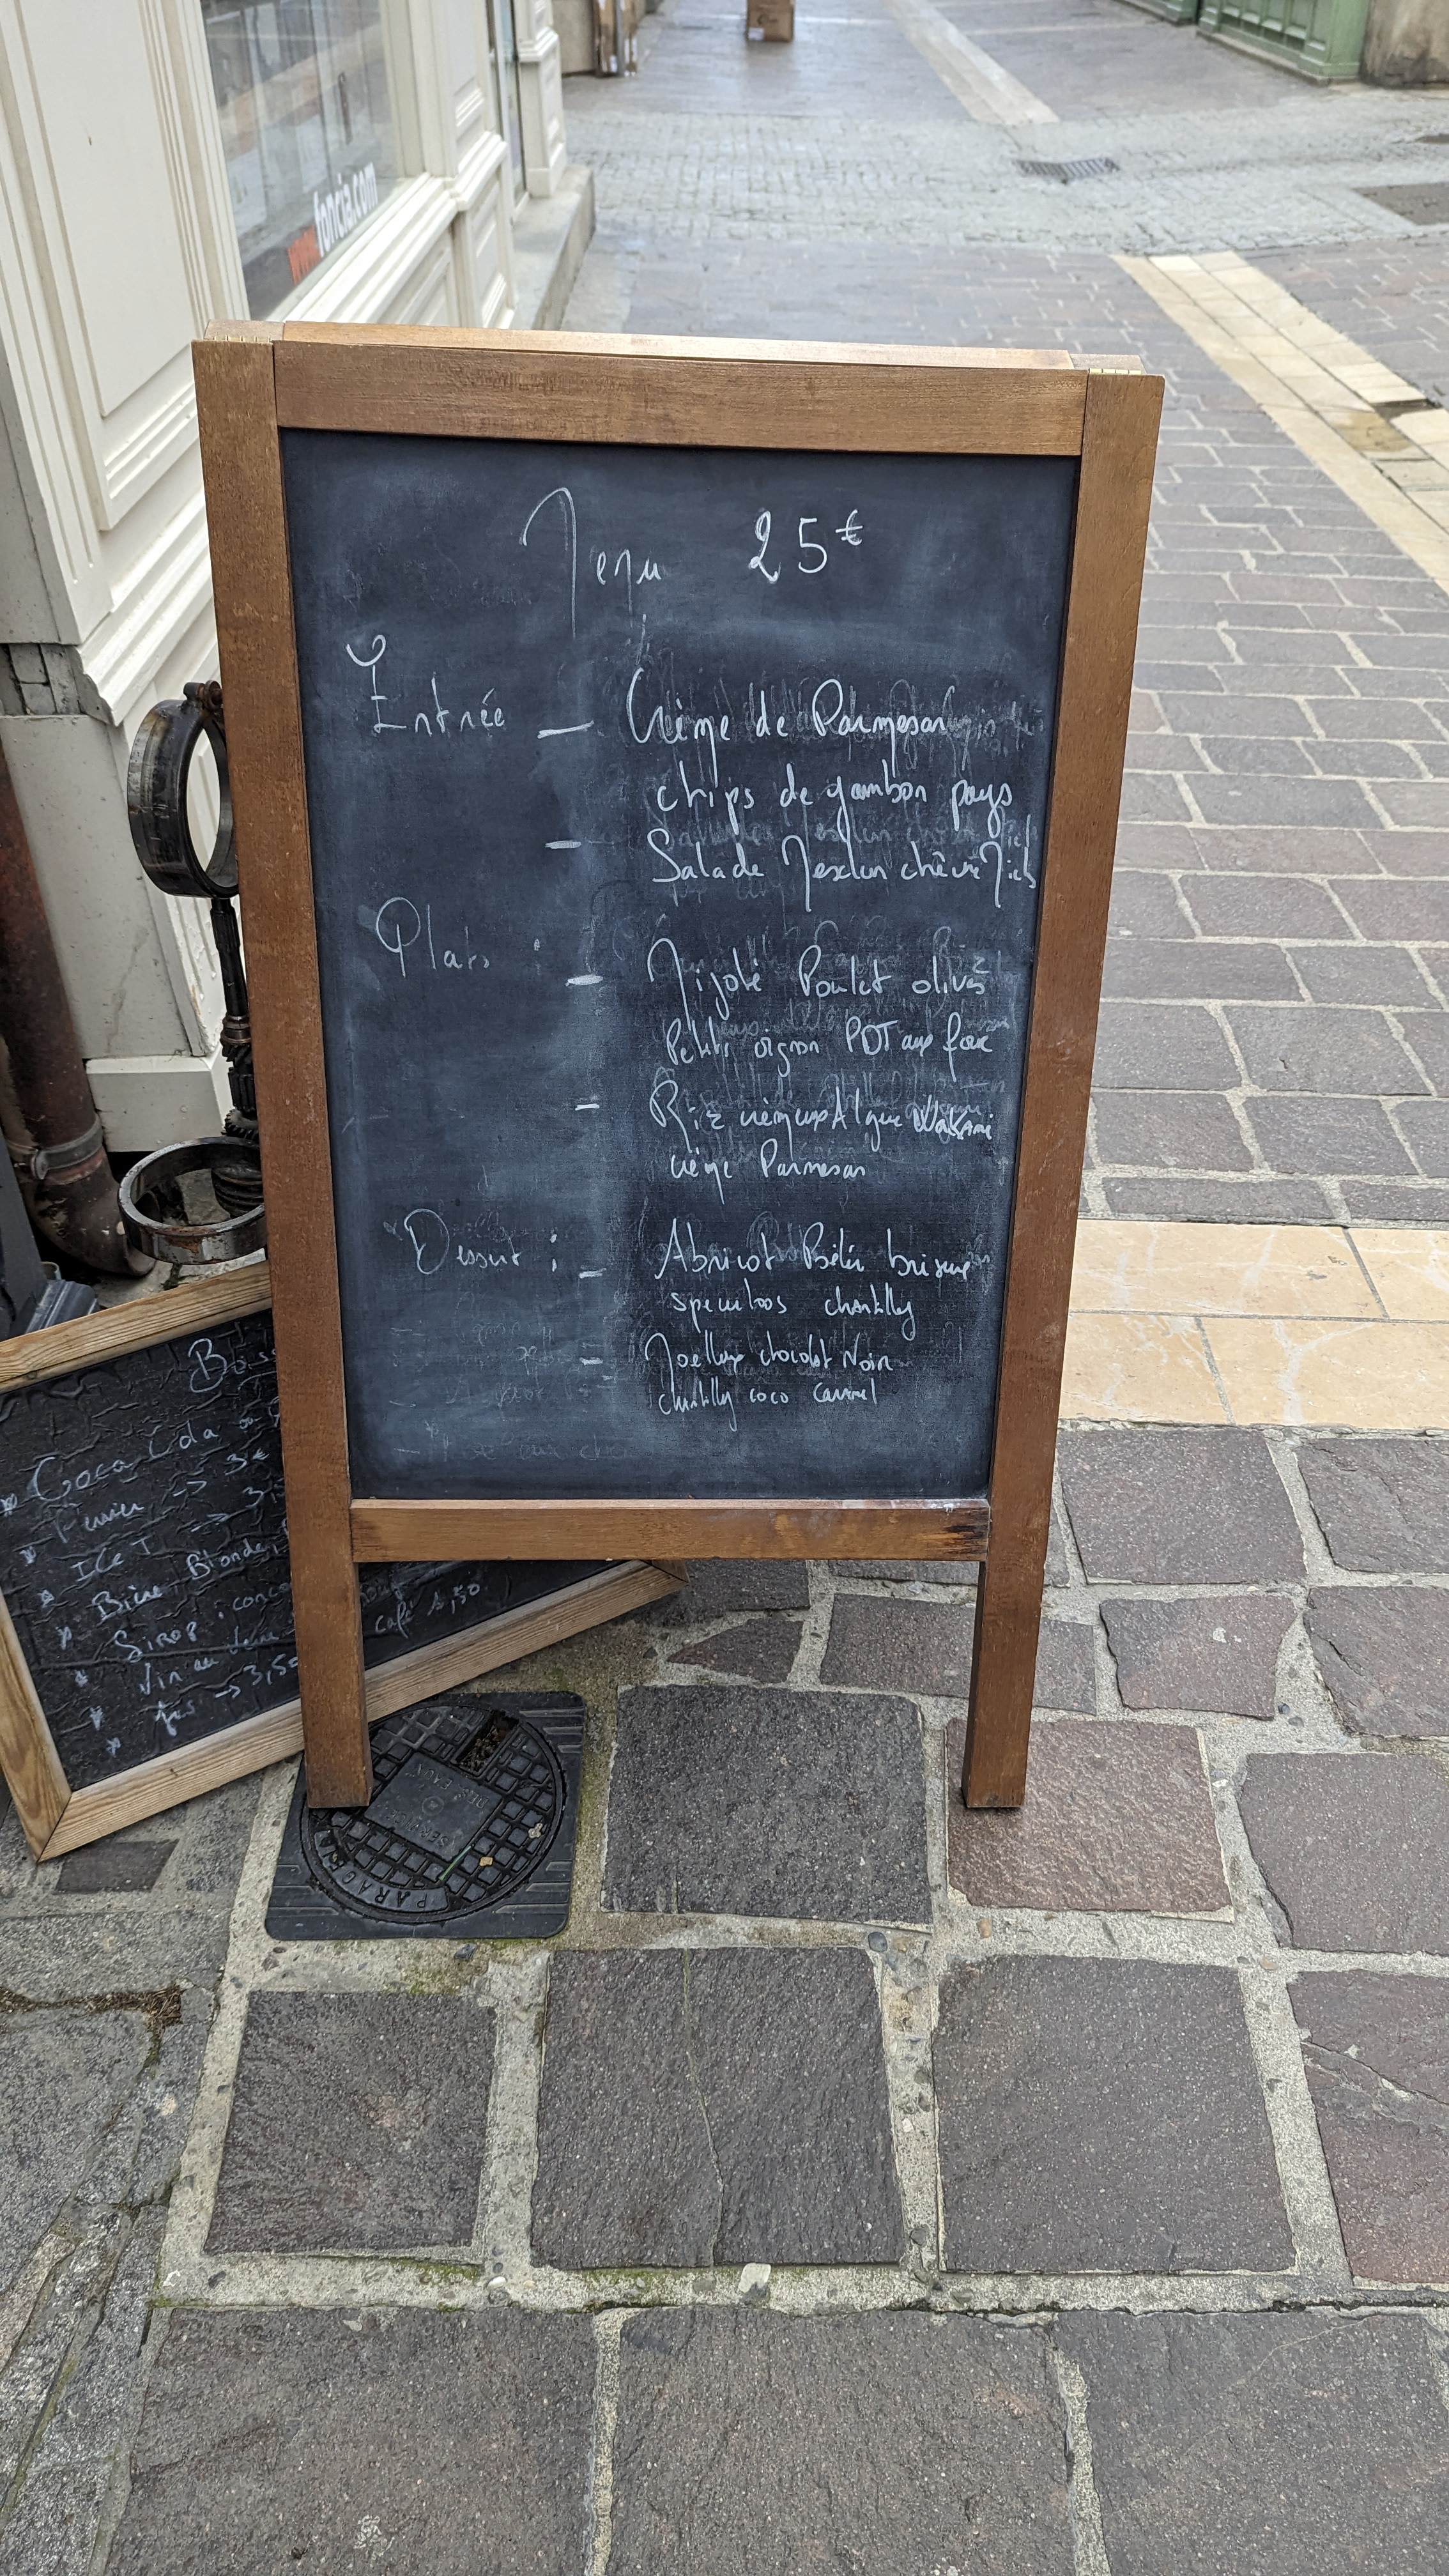 foncia.com
Menu 25€
Entrée – Crème de Parmesan
chips de jambon pays
– Salade Mesclun chèvre Miel
Plats : – Mijoté Poulet olives
Petits oignon PDT au four
– Riz crémeux Algue Wakamé
crème Parmesan
Dessert : – Abricot Rôtis brisure
speculoos chantilly
– Moelleux chocolat Noir
chantilly coco caramel
Coca Cola
-> 3€
ICE T ->
Bière Blonde
Sirop :
Vin au verre café 1,50
jus -> 3,50
PARAGRI